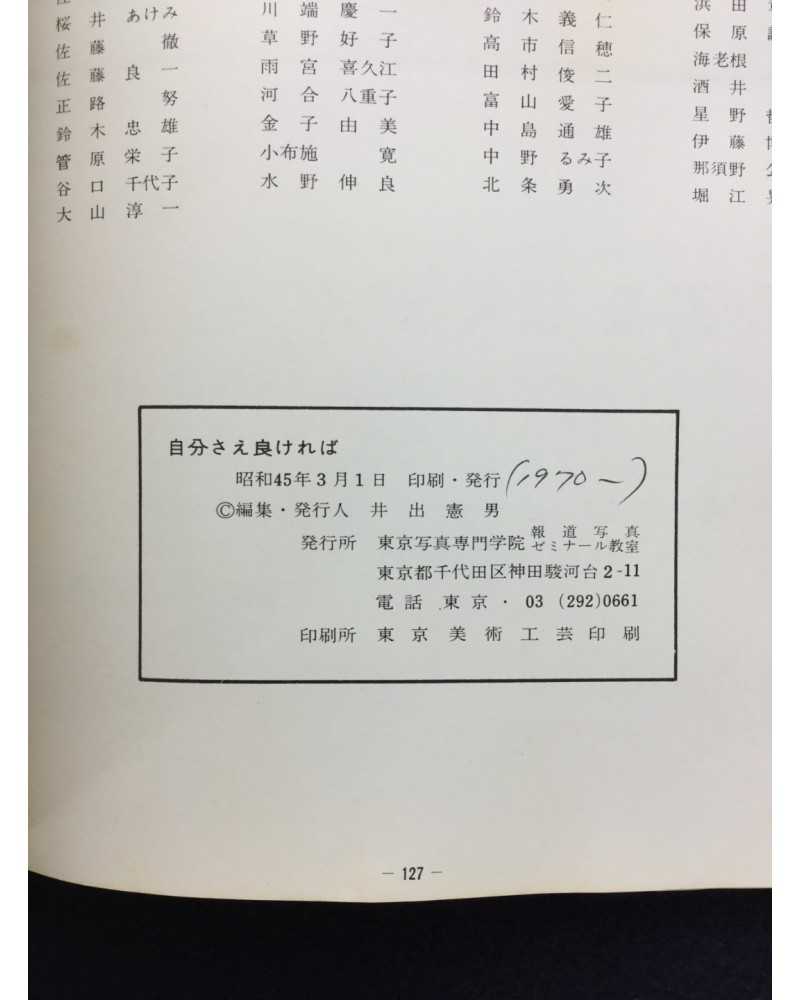 桜井あけみ 川端慶一 鈴木義仁 浜田
佐藤徹 草野好子 高市信穂 保原
佐藤良一 雨宮喜久江 田村俊二 海老根
正路努 河合八重子 富山愛子 酒井
鈴木忠雄 金子由美 中島通雄 星野
管原栄子 小布施寛 中野るみ子 伊藤
谷口千代子 水野伸良 北条勇次 那須野
大山淳一 堀江
自分さえ良ければ
昭和45年3月1日 印刷・発行 (1970ー)
©編集・発行人 井出憲男
発行所 東京写真専門学院 報道写真ゼミナール教室
東京都千代田区神田駿河台2-11
電話 東京・03 (292)0661
印刷所 東京美術工芸印刷
— 127 —